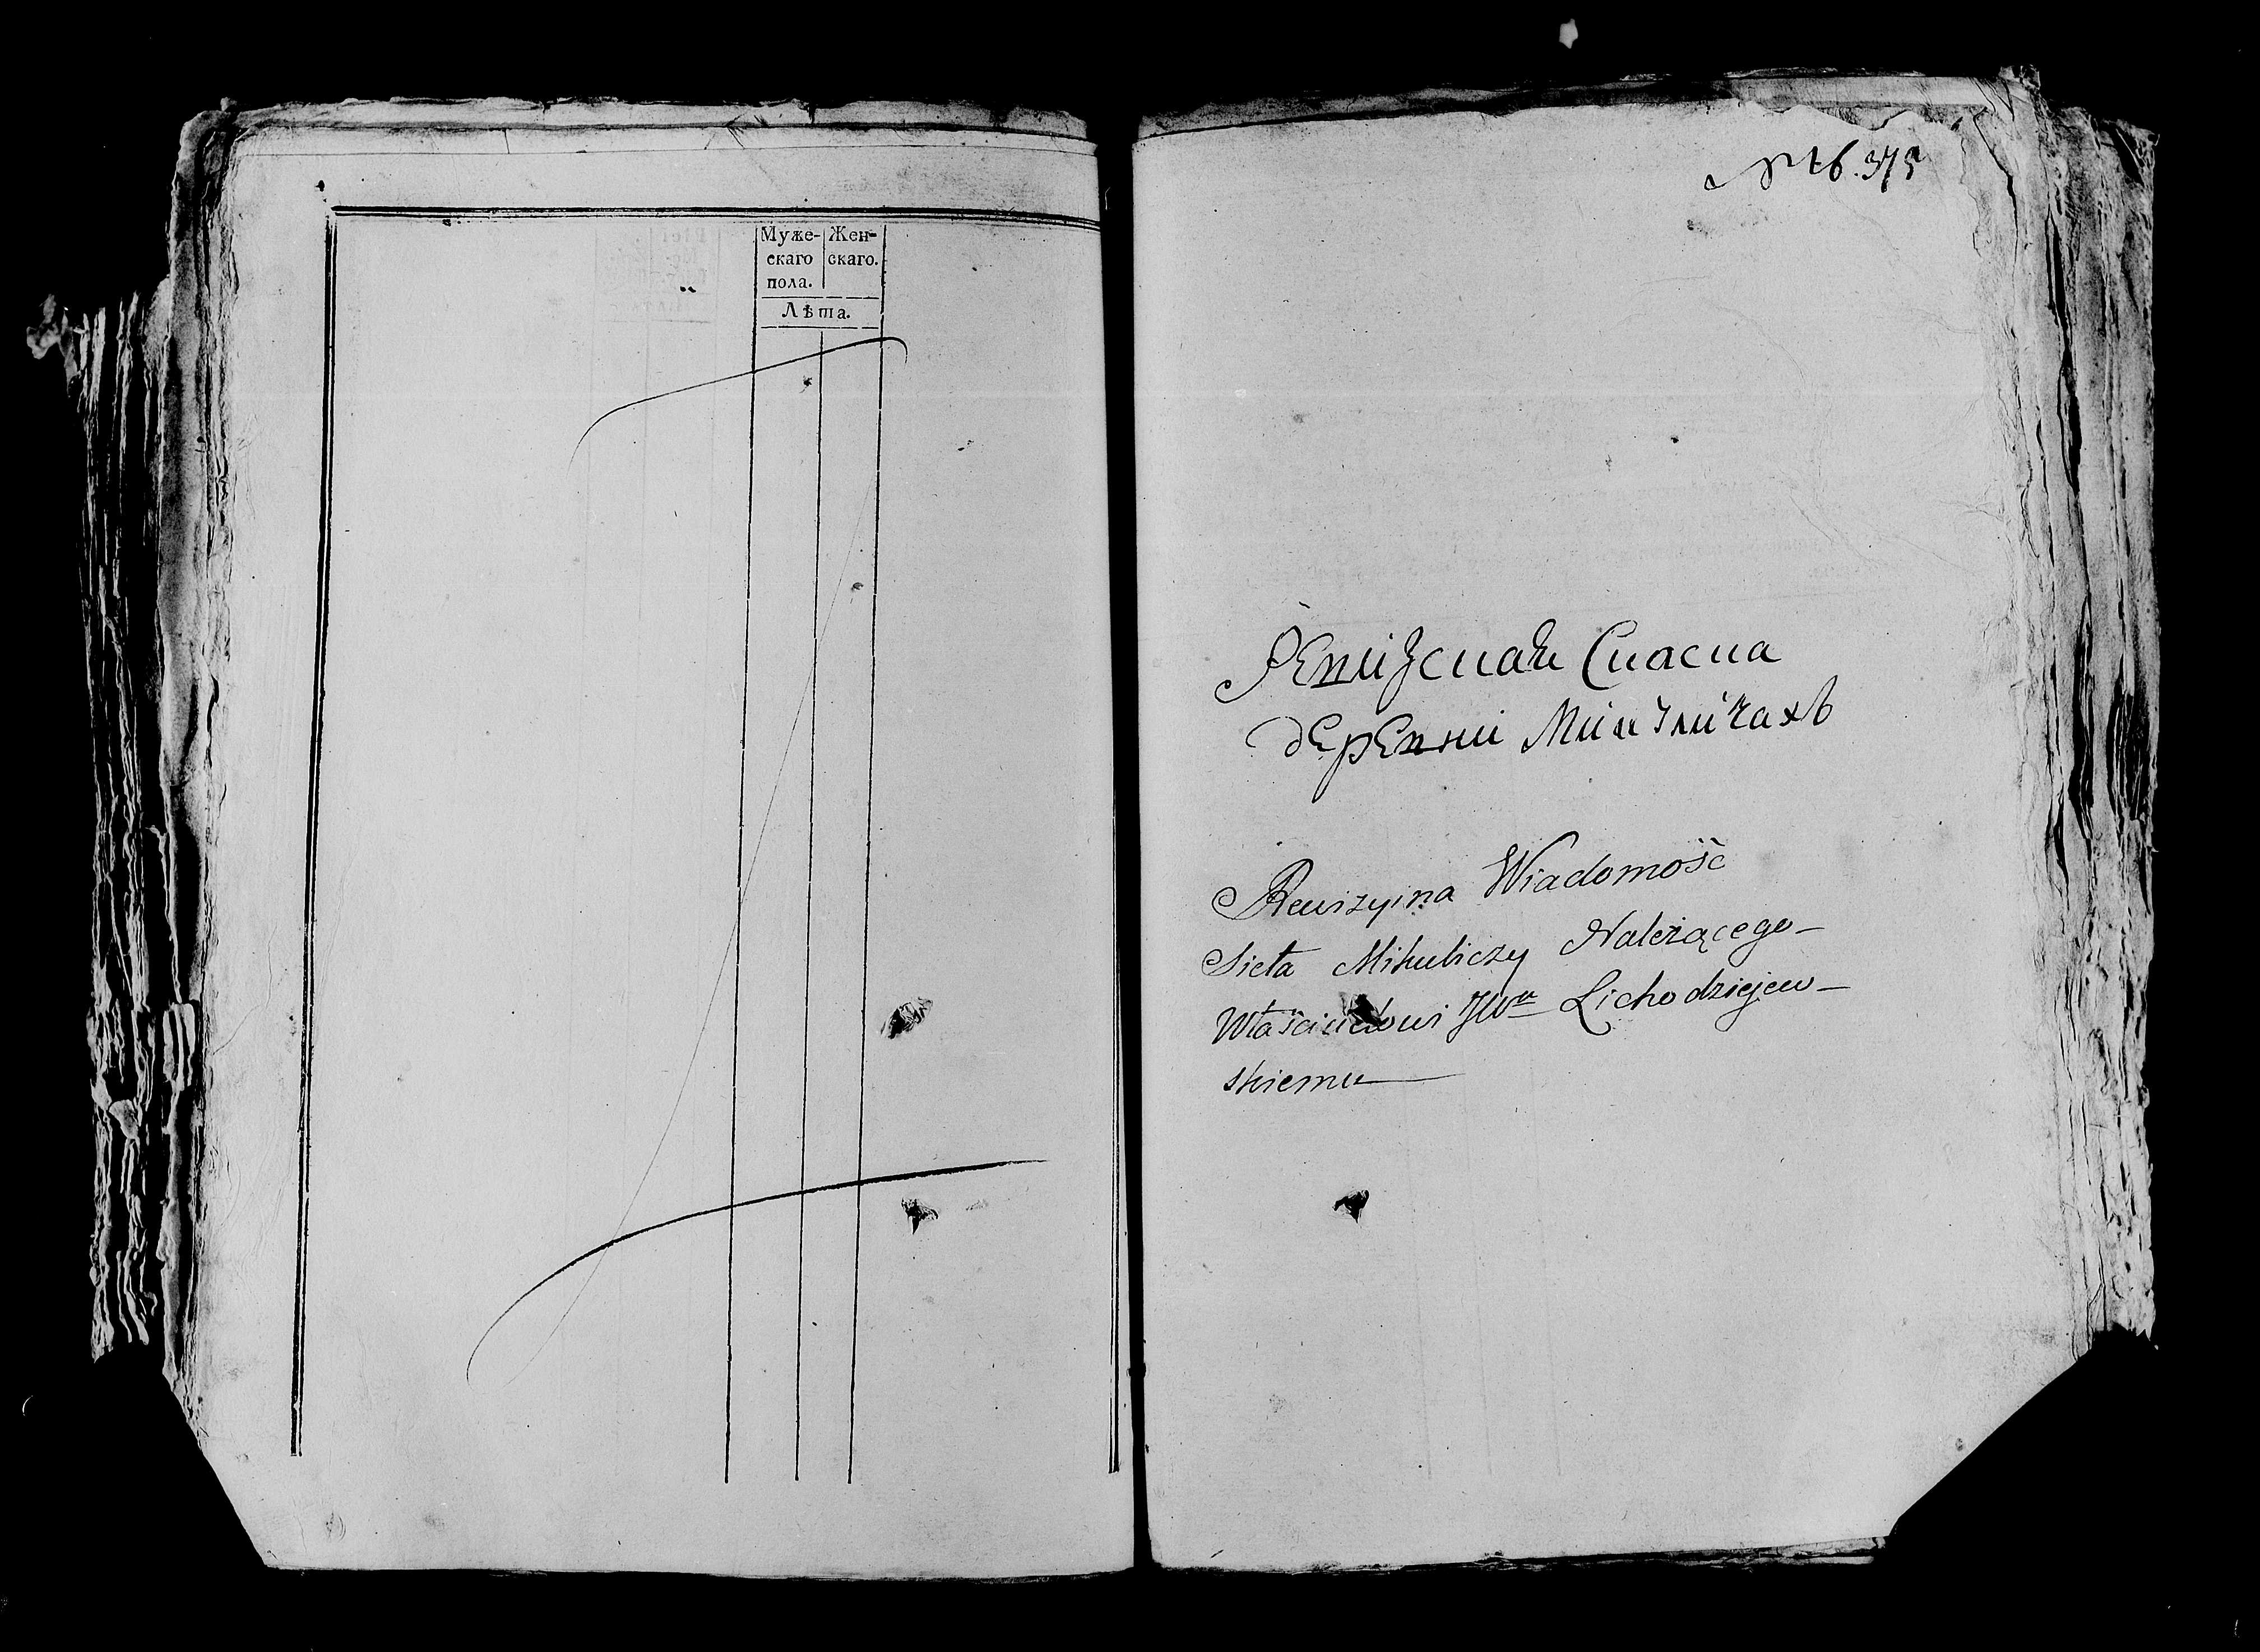 Муже-
скаго
пола.
Жен-
скаго.
Лѣта.
№ 16. 375
Ревизская Сказка
деревни Микуличахъ
Rewizyina Wiadomość
Sieła Mikuliczy Należącego
Właścicielowi JWu Lichodziejew-
skiemu